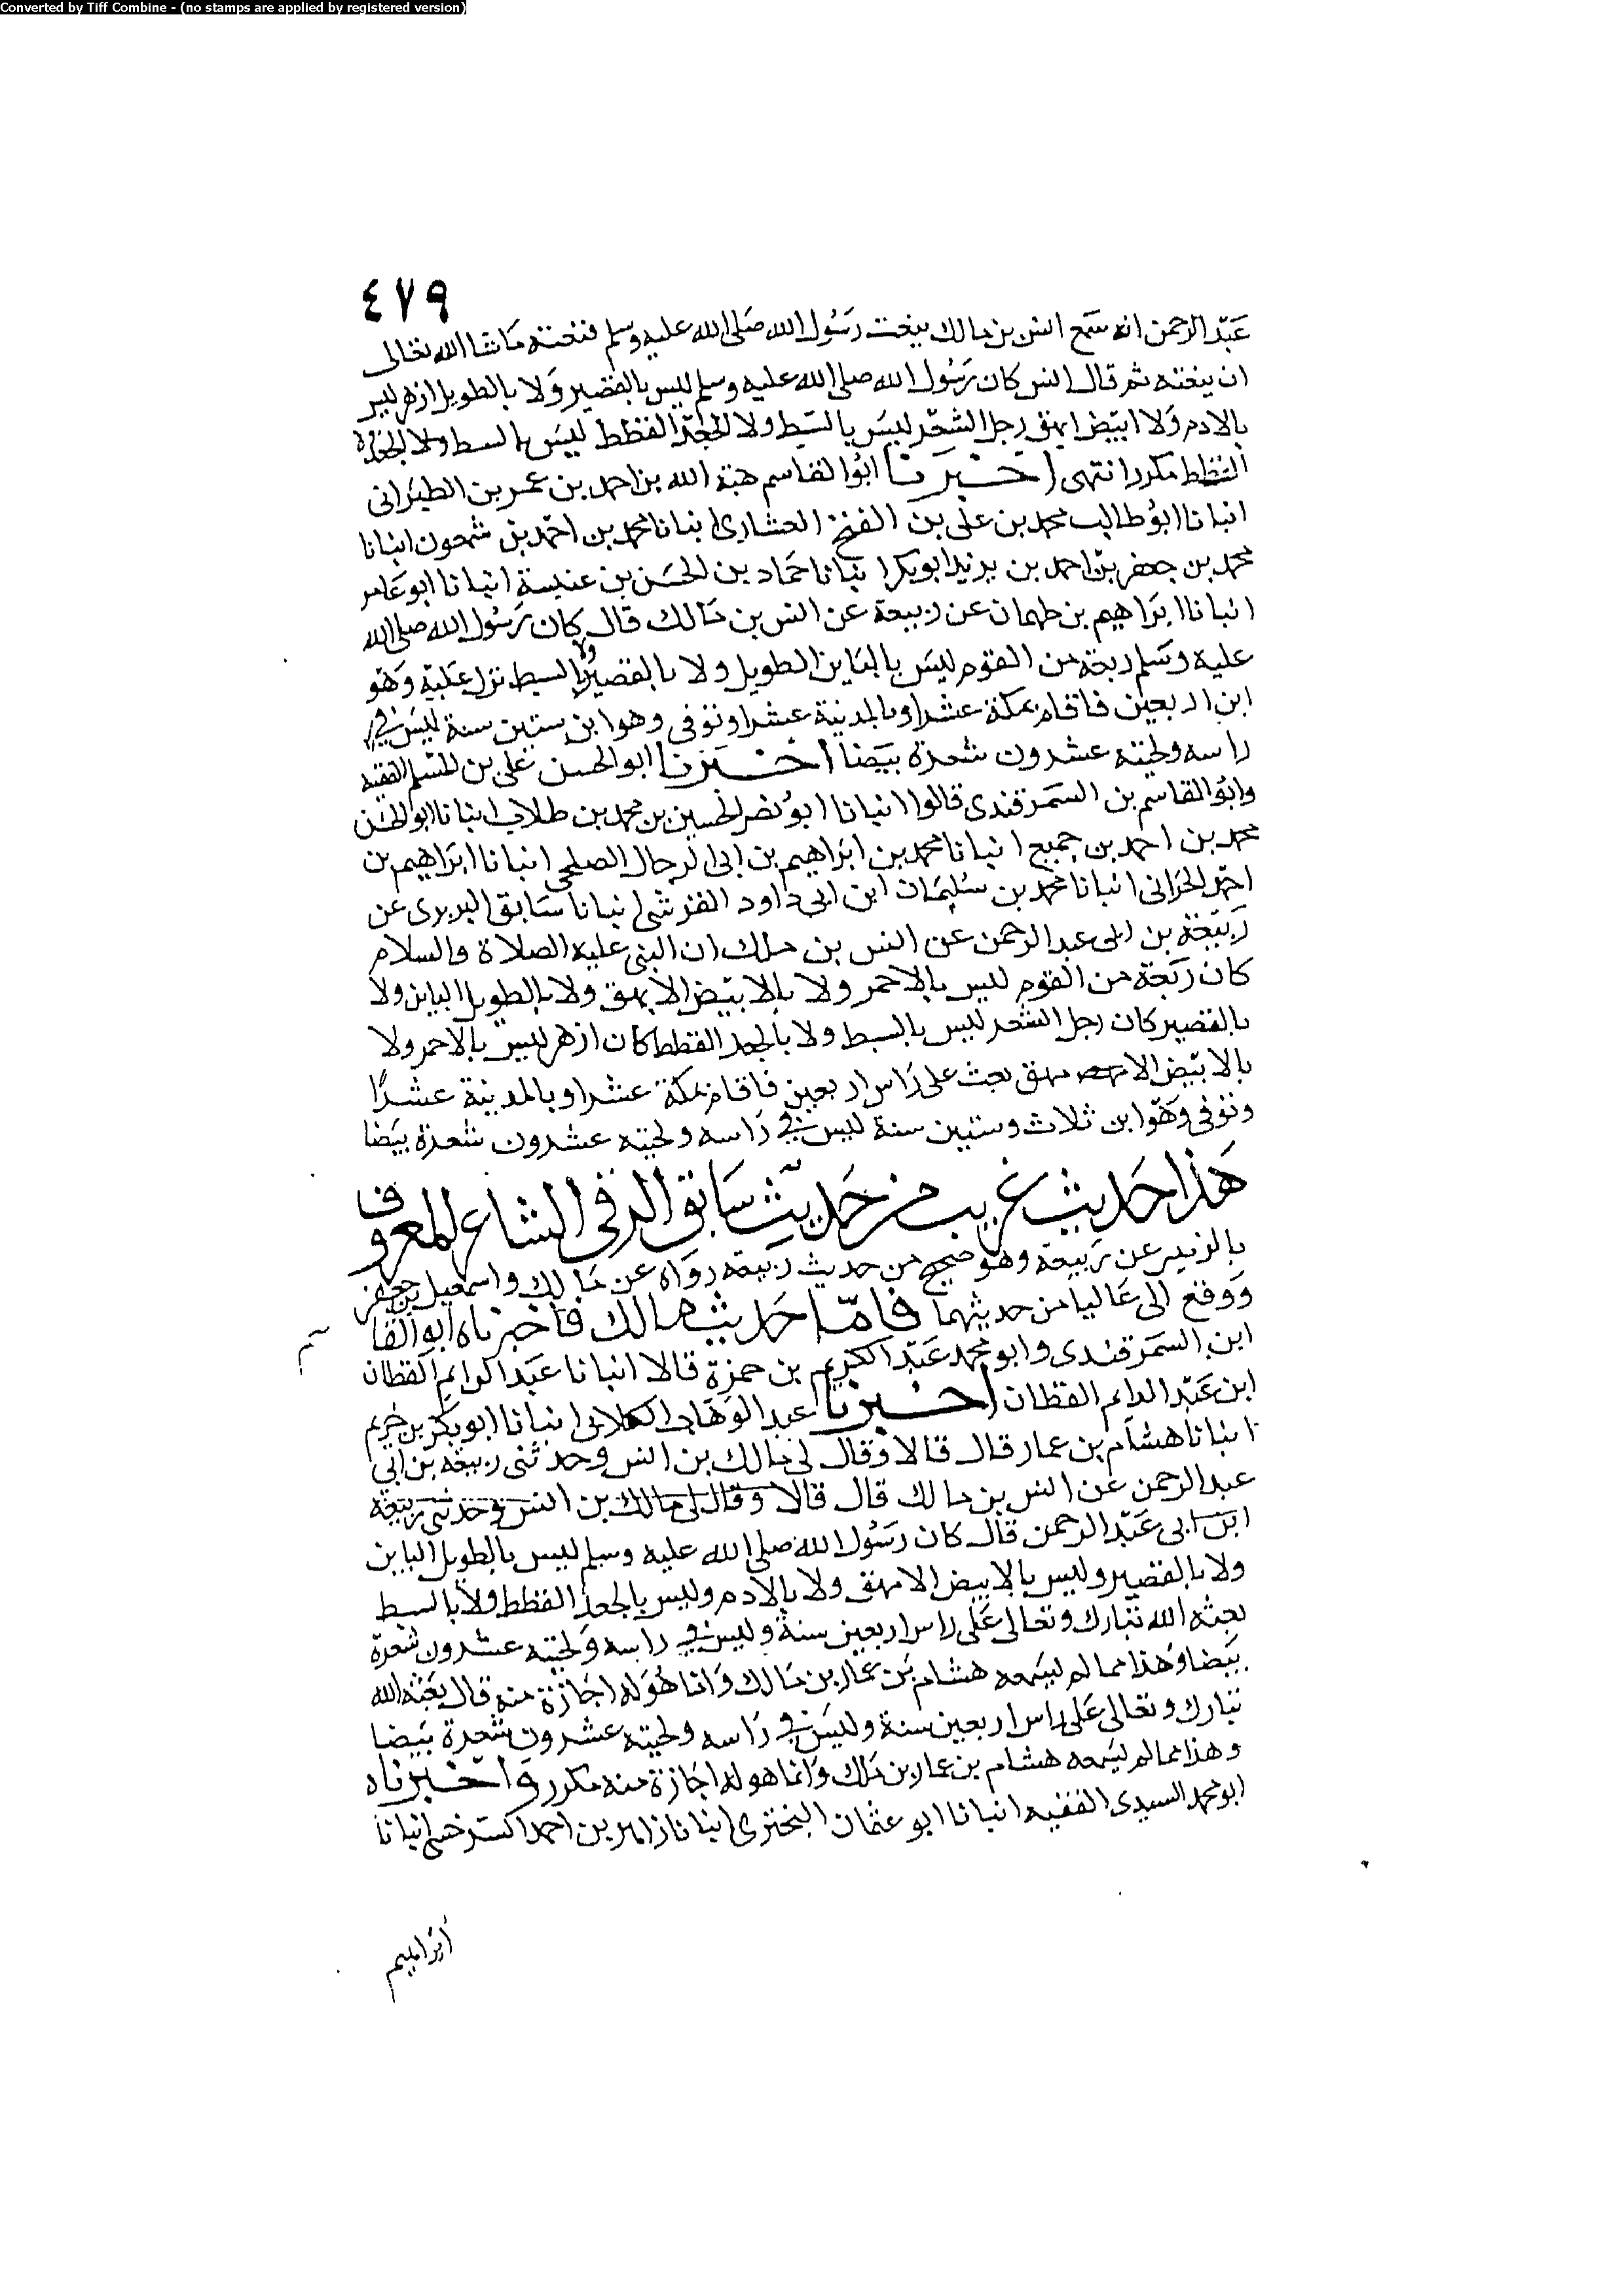 Converted by Tiff Combine - (no stamps are applied by registered version)
٤٧٩
عبد الرحمن انه سمع انس بن مالك ينعت رسول الله صلى الله عليه وسلم فنعته ما شا الله تعالى
ان ينعته ثم قال انس كان رسول الله صلى الله عليه وسلم ليس بالقصير ولا بالطويل ازهر ليس
بالادم ولا ابيض امهق رجل الشعر ليس بالسبط ولا الجعد القطط ليس بالسبط ولا الجعد
القطط مكرر انتهى اخبرنا ابو القاسم هبة الله بن احمد بن عمر بن الطبراني
انبانا ابو طالب محمد بن علي بن الفتح العشاري انبانا محمد بن احمد بن شمعون انبانا
محمد بن جعفر بن احمد بن يزيد ابو بكر انبانا حماد بن الحسن بن عنبسة انبانا ابو عامر
انبانا ابراهيم بن طهمان عن ربيعة عن انس بن مالك قال كان رسول الله صلى الله
عليه وسلم ربعة من القوم ليس بالباين الطويل ولا بالقصير ولا السبط نزل عليه وهو
ابن اربعين فاقام بمكة عشرا وبالمدينة عشرا وتوفى وهو ابن ستين سنة ليس في
راسه ولحيته عشرون شعرة بيضا اخبرنا ابو الحسن علي بن المسلم الفقيه
وابو القاسم بن السمرقندى قالوا انبانا ابو نصر الحسين بن محمد بن طلاب انبانا ابو الحسن
محمد بن احمد بن جميع انبانا محمد بن ابراهيم بن ابي الرجال الصلحي انبانا ابراهيم بن
احمد الحراني انبانا محمد بن سليمان ابن ابي داود القرشي انبانا سابق البربرى عن
ربيعة بن ابي عبد الرحمن عن انس بن ملك ان النبي عليه الصلاة والسلام
كان ربعة من القوم ليس بالاحمر ولا بالابيض الامهق ولا بالطويل الباين ولا
بالقصير كان رجل الشعر ليس بالسبط ولا بالجعد القطط كان ازهر ليس بالاحمر ولا
بالابيض الامهق بعث على راس اربعين فاقام بمكة عشرا وبالمدينة عشرًا
وتوفى وهو ابن ثلاث وستين سنة ليس في راسه ولحيته عشرون شعرة بيضا
هذا حديث غريب من حديث سابق الرقى الشاعر المعروف
بالزبير عن ربيعة وهو صحيح من حديث ربيعة رواه عن مالك واسمعيل بن جعفر
ووقع الى عاليا من حديثهما فامّا حديث مالك فاخبرناه ابو القا
سم
ابن السمرقندى وابو محمد عبد الكريم بن حمزة قالا انبانا عبد الدايم القطان
ابن عبد الدايم القطان اخبرنا عبد الوهاب الكلابى انبانا ابو بكر بن خريم
انبانا هشام بن عمار قال قالا وقال لى مالك بن انس وحدثنى ربيعة بن ابي
عبد الرحمن عن انس بن مالك قال قالا وقال لى مالك بن انس وحدثنى ربيعة
ابن ابى عبد الرحمن قال كان رسول الله صلى الله عليه وسلم ليس بالطويل الباين
ولا بالقصير وليس بالابيض الامهق ولا بالادم وليس بالجعد القطط ولا بالسبط
بعثه الله تبارك وتعالى على راس اربعين سنة وليس في راسه ولحيته عشرون شعرة
بيضا وهذا مما لم يسمعه هشام بن عمار بن مالك وانما هو له اجازة منه قال بعثه الله
تبارك وتعالى على راس اربعين سنة وليس في راسه ولحيته عشرون شعرة بيضا
وهذا مما لم يسمعه هشام بن عمار بن ملك وانما هو له اجازة منه مكرر واخبرناه
ابو محمد السيدى الفقيه انبانا ابو عثمان البخترى انبانا زاهر بن احمد السرخسى انبانا
ابراهيم